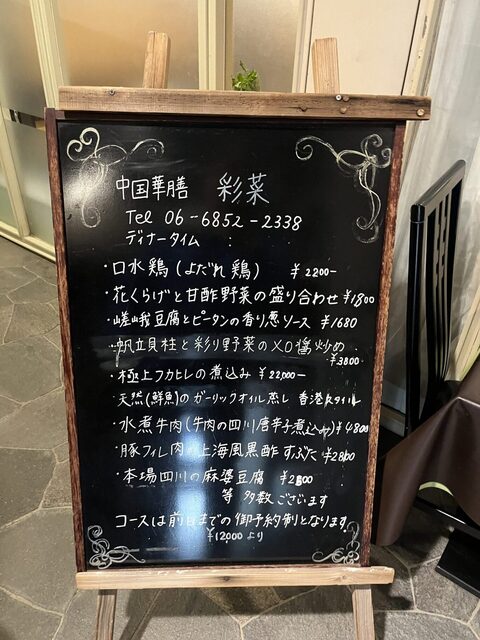 中国華膳 彩菜
Tel 06-6852-2338
ディナータイム :
・口水鶏(よだれ鶏) ¥2200-
・花くらげと甘酢野菜の盛り合わせ ¥1800
・嵯峨豆腐とピータンの香り葱ソース ¥1680
・帆立貝柱と彩り野菜のXO醤炒め
¥3800-
・極上フカヒレの煮込み ¥22,000-
天然(鮮魚)のガーリックオイル蒸し 香港スタイル
・水煮牛肉(牛肉の四川唐辛子煮込み) ¥4800
・豚フィレ肉の上海風黒酢すぶた ¥2800
・本場四川の麻婆豆腐 ¥2800
等 多数ございます
コースは前日までの御予約制となります
¥12,000より